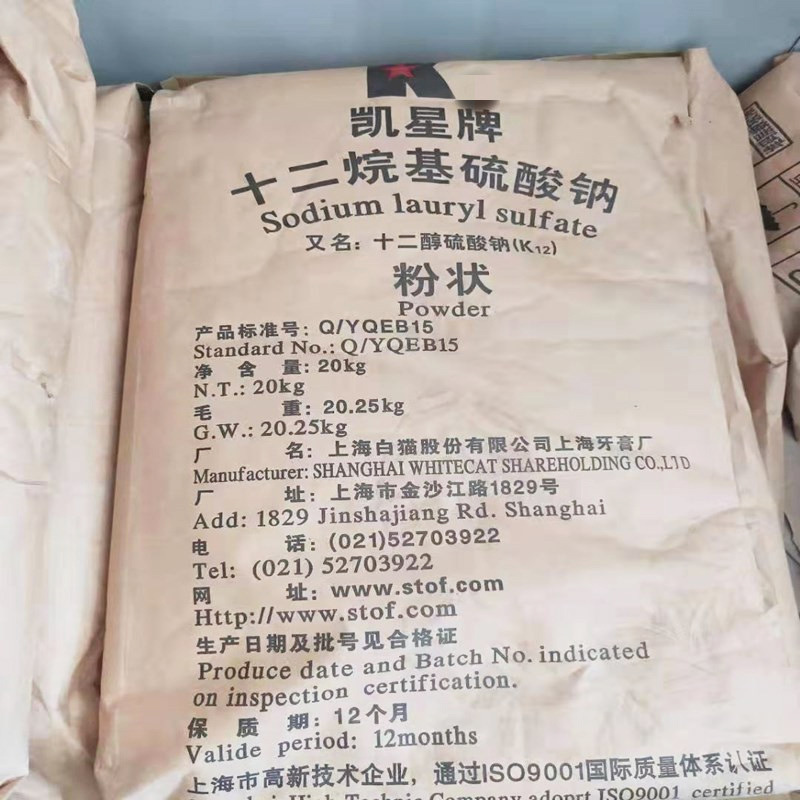 凯星牌
十二烷基硫酸钠
Sodium lauryl sulfate
又名：十二醇硫酸钠(K12)
粉状
Powder
产品标准号：Q/YQEB15
Standard No.: Q/YQEB15
净 含 量：20kg
N.T.: 20kg
毛 重：20.25kg
G.W.: 20.25kg
厂 名：上海白猫股份有限公司上海牙膏厂
Manufacturer: SHANGHAI WHITECAT SHAREHOLDING CO.,LTD
厂 址：上海市金沙江路1829号
Add: 1829 Jinshajiang Rd. Shanghai
电 话：(021)52703922
Tel: (021) 52703922
网 址：www.stof.com
Http://www.stof.com
生产日期及批号见合格证
Produce date and Batch No. indicated
on inspection certification.
保 质 期：12个月
Valide period: 12months
上海市高新技术企业，通过ISO9001国际质量体系认证
High Technic Company adoprt ISO9001 certified